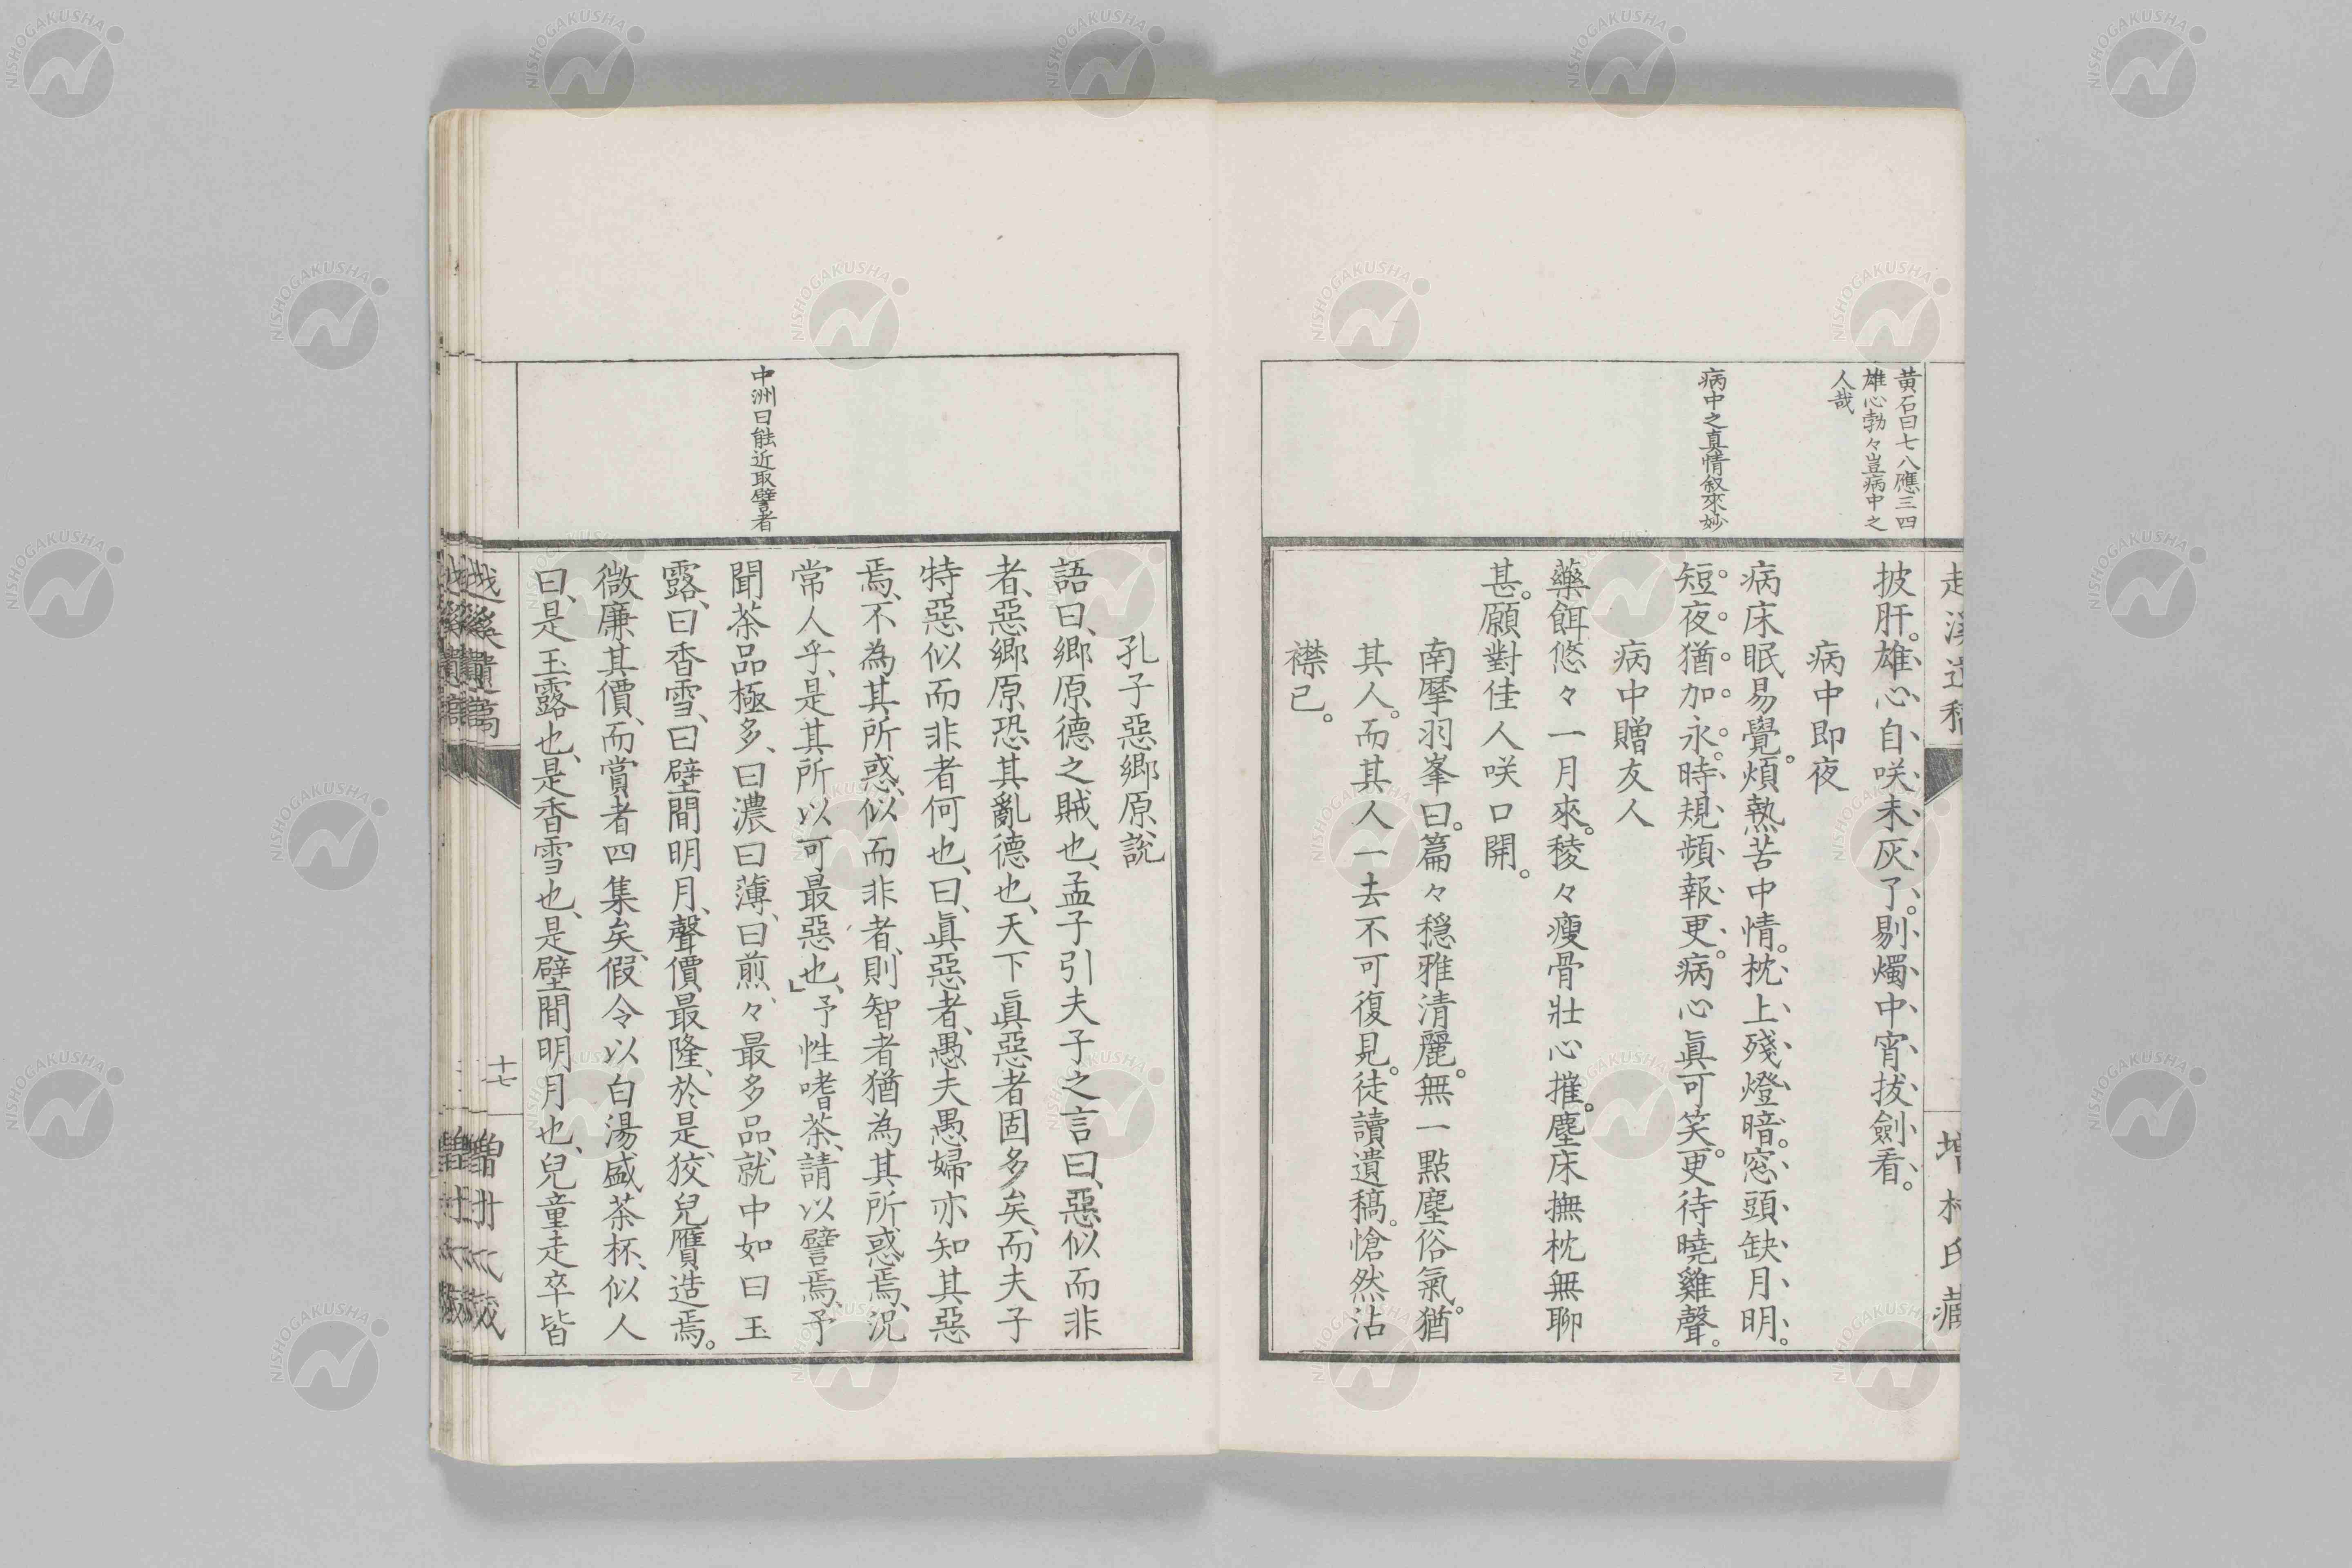 黄石曰七八應三四
雄心勃々豈病中之
人哉
病中之真情叙來妙
披肝。雄心自咲未灰了。剔燭中宵拔劍看。
病中即夜
病床眠易覺。煩熱苦中情。枕上殘燈暗。窓頭缺月明。
短夜猶加永。時規頻報更。病心眞可笑。更待曉雞聲。
病中贈友人
藥餌悠々一月來。稜々瘦骨壯心摧。塵床撫枕無聊
甚。願對佳人咲口開。
南摩羽峯曰。篇々穏雅清麗。無一點塵俗氣。猶
其人。而其人一去不可復見。徒讀遺稿。愴然沾
襟已。
中洲曰能近取譬者
孔子惡鄉原說
語曰、鄉原德之賊也、孟子引夫子之言曰、惡似而非
者、惡鄉原恐其亂德也、天下眞惡者固多矣、而夫子
特惡似而非者何也、曰、眞惡者、愚夫愚婦亦知其惡
焉、不為其所惑、似而非者、則智者猶為其所惑焉、況
常人乎、是其所以可最惡也、」予性嗜茶、請以譬焉、予
聞茶品極多、曰濃曰薄、曰煎、々最多品、就中如曰玉
露、曰香雪、曰壁間明月、聲價最隆、於是、狡兒贋造焉。
微廉其價、而賞者四集矣、假令以白湯盛茶杯、似人
曰、是玉露也、是香雪也、是壁間明月也、兒童走卒皆
十七
NISHOGAKUSHA